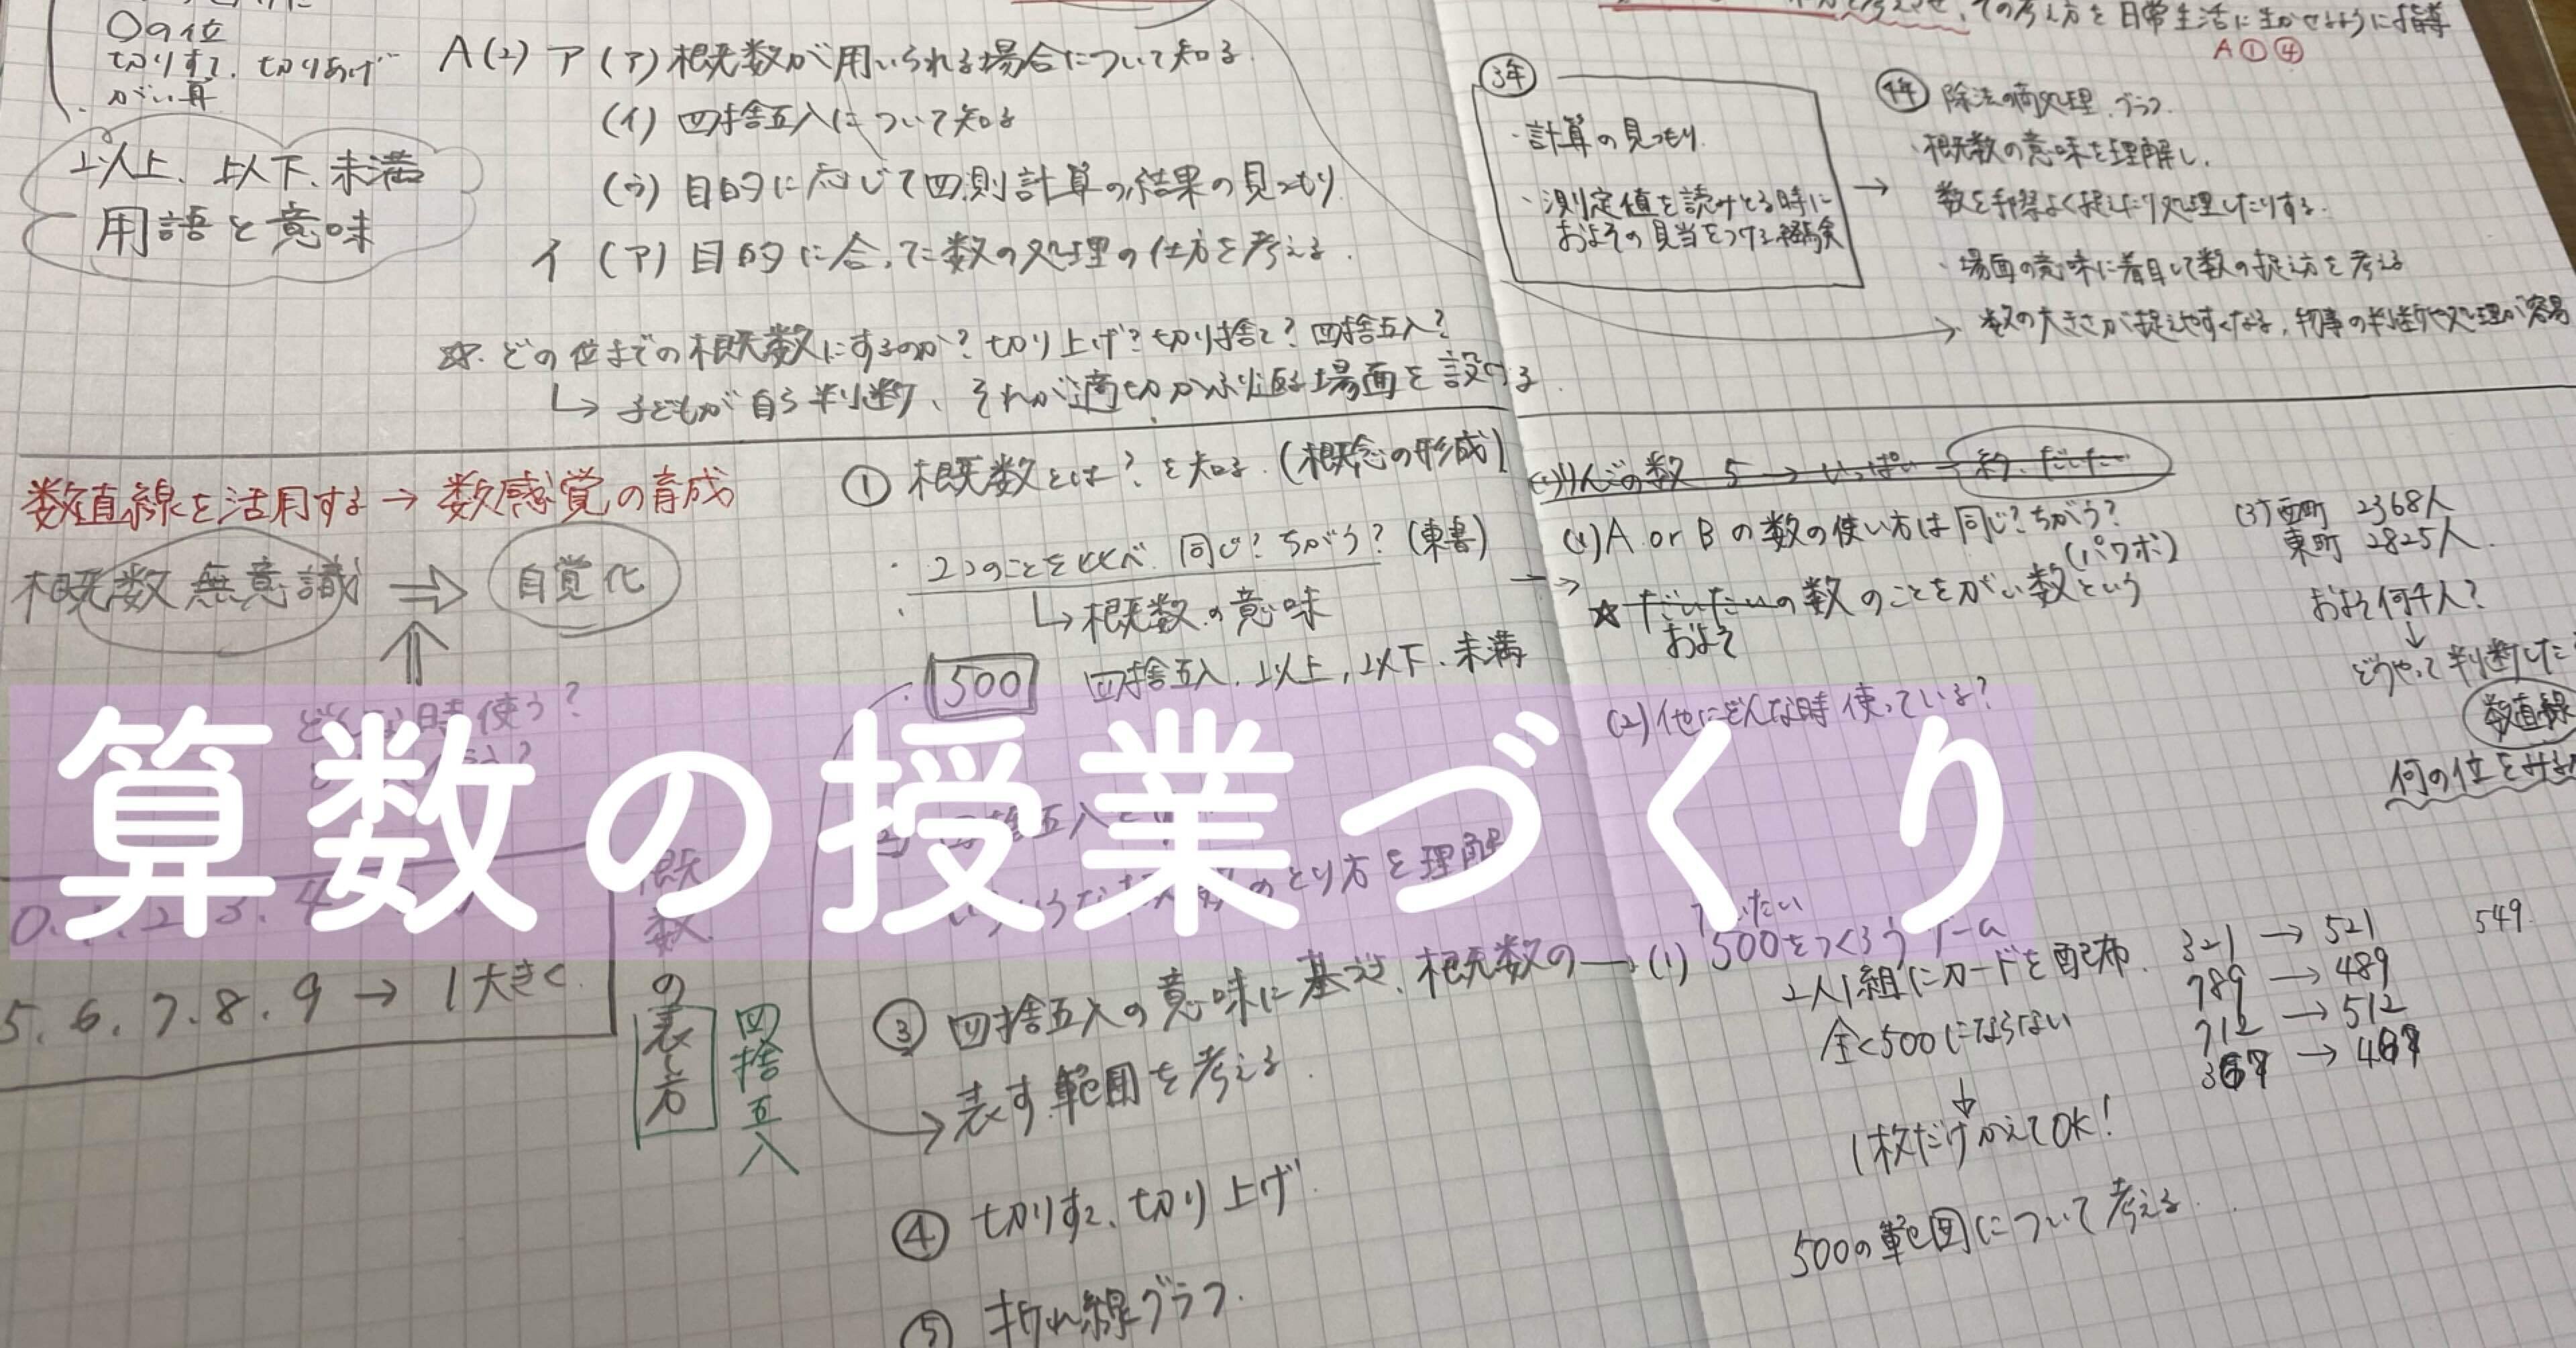 〇の位
切りすて、切りあげ
がい算
以上、以下、未満
用語と意味
A(2) ア (ア) 概数が用いられる場合について知る
(イ) 四捨五入について知る
(ウ) 目的に応じて四則計算の結果の見つもり
イ (ア) 目的に合った数の処理の仕方を考える.
☆. どの位までの概数にするのか? 切り上げ? 切り捨て? 四捨五入?
↳ 子どもが自ら判断、それが適切かふり返る場面を設ける
日常生活に生かせるように指導
A①④
3年
・計算の見つもり
・測定値を読みとる時に
およその見当をつける経験
→
4年 除法の商処理、グラフ.
・概数の意味を理解し、
数を手際よく捉えたり処理したりする.
・場面の意味に着目して数の捉え方を考える
数の大きさが捉えやすくなる, 物事の判断や処理が容易
数直線を活用する → 数感覚の育成
概数 無意識 ⇒ 自覚化
時使う?
0.1.2.3.4
5.6.7.8.9 → 1大きく
概数の表し方
四捨五入
① 概数とは? を知る. (概念の形成)
・2つのことを比べ 同じ? ちがう? (東書)
↳ 概数の意味
・500 四捨五入、以上, 以下、未満
のとり方を理解
③ 四捨五入の意味に基づき、概数の
→ 表す範囲を考える.
④ 切りすて、切り上げ.
⑤ 折れ線グラフ.
(1)りんごの数 5 → いっぱい → 約、だいたい
(1) A or B の数の使い方は同じ? ちがう?
(パワポ)
☆ だいたいの数のことをがい数という
およそ
(2) 他にどんな時使っている?
(3) 西町 2368人
東町 2825人
およそ何千人?
↓
どうやって判断した
数直線
何の位をみる
(1) 500をつくろうゲーム
2人1組にカードを配布.
全く500にならない
↓
1枚だけかえてOK!
500の範囲について考える.
321 → 521
789 → 489
712 → 512
549
算数の授業づくり